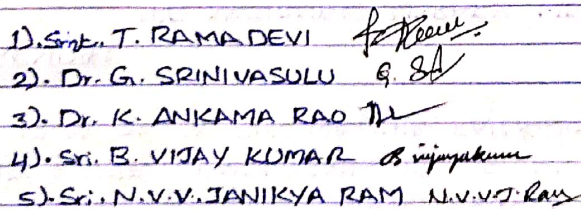 1). Smt. T. RAMADEVI
2). Dr. G. SRINIVASULU G. S
3). Dr. K. ANKAMA RAO
4). Sri. B. VIJAY KUMAR B vijayakumar
5). Sri. N.V.V. JANIKYA RAM N.V.V.J. Ram